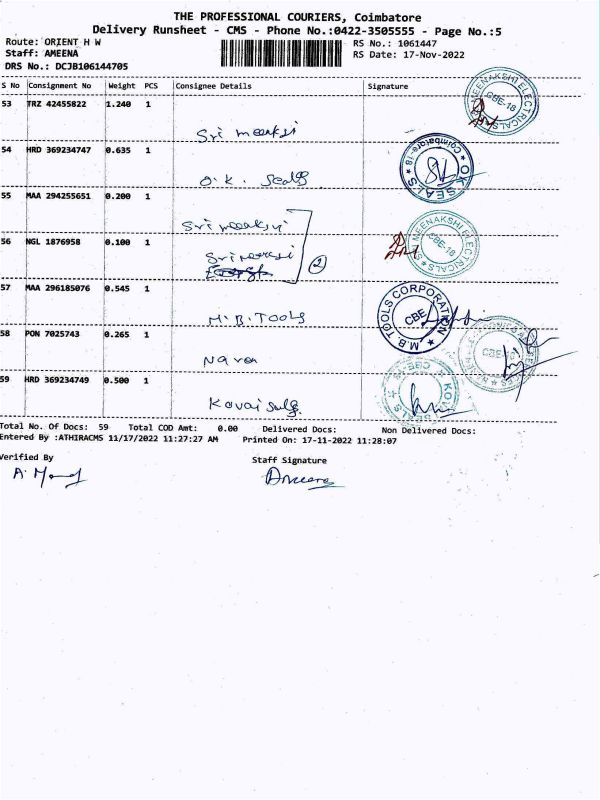 THE PROFESSIONAL COURIERS, Coimbatore
Delivery Runsheet - CMS - Phone No.:0422-3505555 - Page No.:5
Route: ORIENT H W RS No.: 1061447
Staff: AMEENA RS Date: 17-Nov-2022
DRS No.: DCJB106144705
S No Consignment No Weight PCS Consignee Details Signature
53 TRZ 42455822 1.240 1
MEENAKSHI ELECTRICALS CBE-18
Sri meenaksi
54 HRD 369234747 0.635 1
O.K SEALS Coimbatore-18
O.K. Seals
55 MAA 294255651 0.200 1
Sri meenaksi
56 NGL 1876958 0.100 1
MEENAKSHI ELECTRICALS CBE-18
Sri meenaksi
2
57 MAA 296185076 0.545 1
M.B. TOOLS CORPORATION CBE
M.B. TOOLS
58 PON 7025743 0.265 1
CBE
59 HRD 369234749 0.500 1
KOVAI SEALS CBE-18
Kovai
Total No. Of Docs: 59 Total COD Amt: 0.00 Delivered Docs: Non Delivered Docs:
Entered By :ATHIRACMS 11/17/2022 11:27:27 AM Printed On: 17-11-2022 11:28:07
Verified By Staff Signature